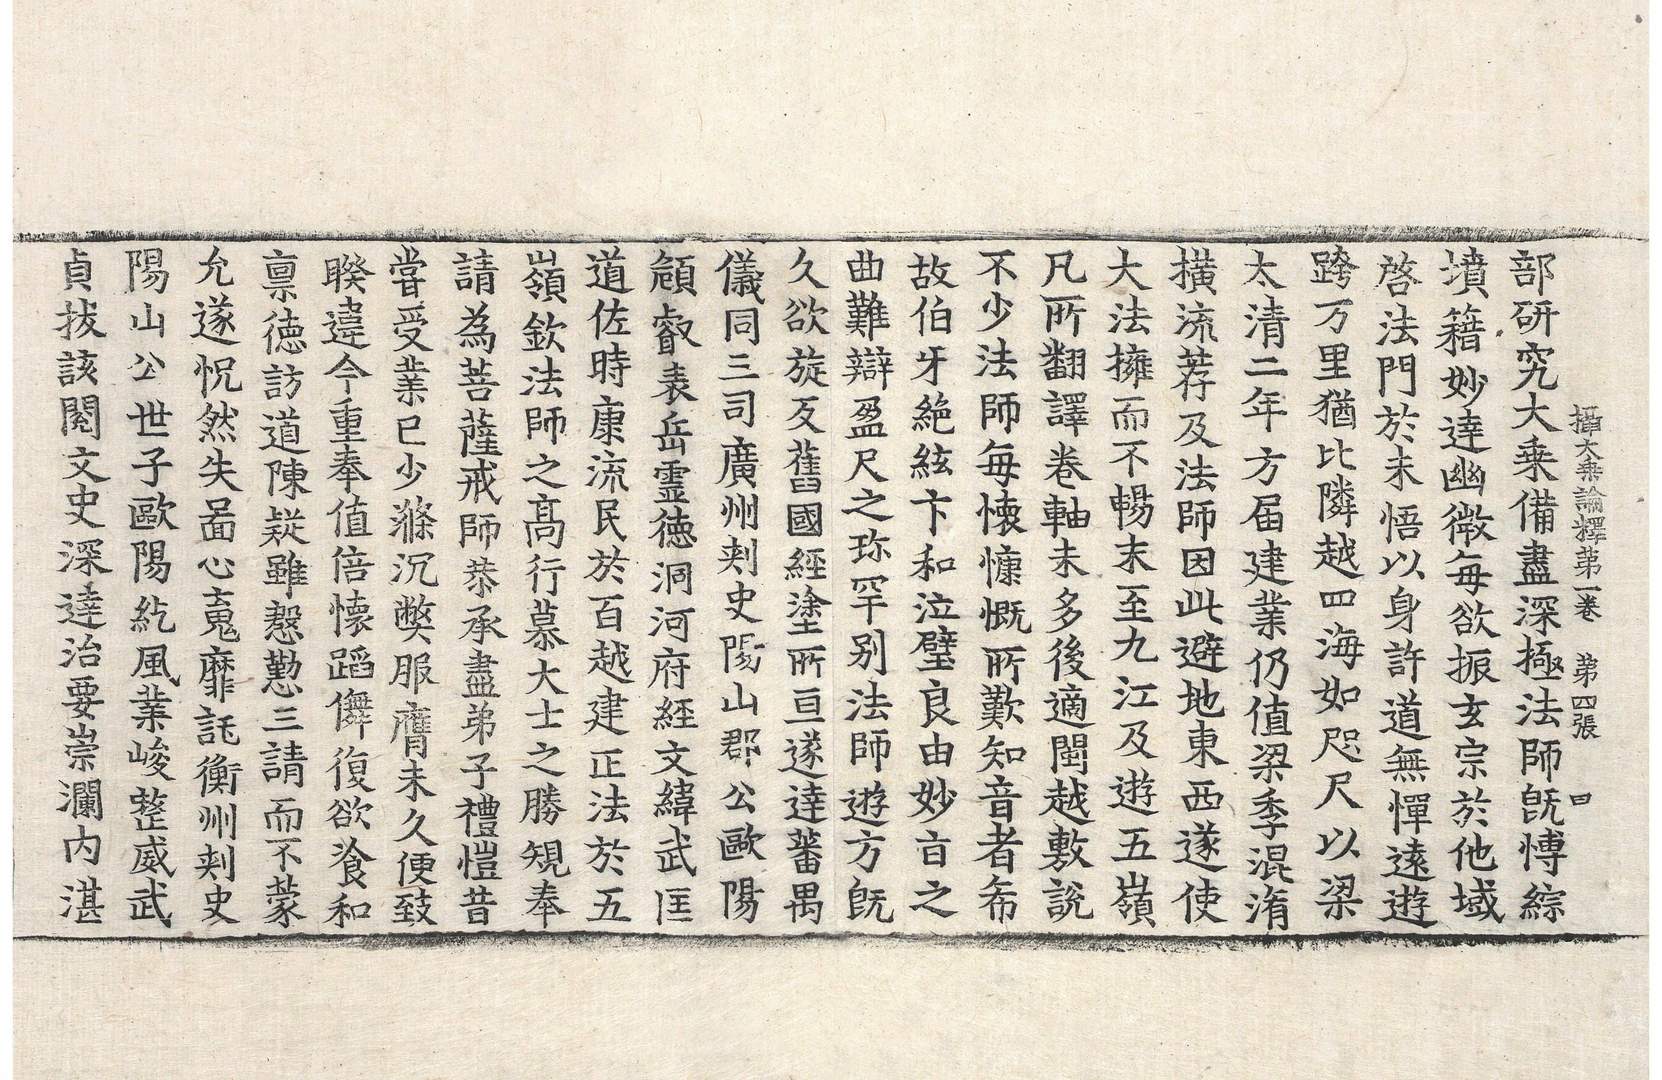 攝大乘論釋第一卷　第四張　四
部研究大乘備盡深極法師既博綜
墳籍妙達幽微每欲振玄宗於他域
啓法門於未悟以身許道無憚遠遊
跨万里猶比隣越四海如咫尺以梁
太清二年方届建業仍值梁季混淆
撗流荐及法師因此避地東西遂使
大法擁而不暢末至九江及遊五嶺
凡所翻譯卷軸未多後適閩越敷說
不少法師每懷慷慨所歎知音者希
故伯牙絶絃卞和泣璧良由妙旨之
曲難辯盈尺之珎罕別法師遊方既
久欲旋反舊國經塗所亘遂達蕃禺
儀同三司廣州刾史陽山郡公歐陽
頠叡表岳靈德洞河府經文緯武匡
道佐時康流民於百越建正法於五
嶺欽法師之髙行慕大士之勝䂓奉
請為菩薩戒師恭承盡弟子禮愷昔
嘗受業已少滌沉弊服膺未久便致
睽違今重奉值倍懷蹈儛復欲飡和
禀德訪道陳疑雖慇懃三請而不蒙
允遂怳然失啚心䰟靡託衡州刾史
陽山公世子歐陽紇風業峻整威武
貞拔該閱文史深達治要崇瀾内湛